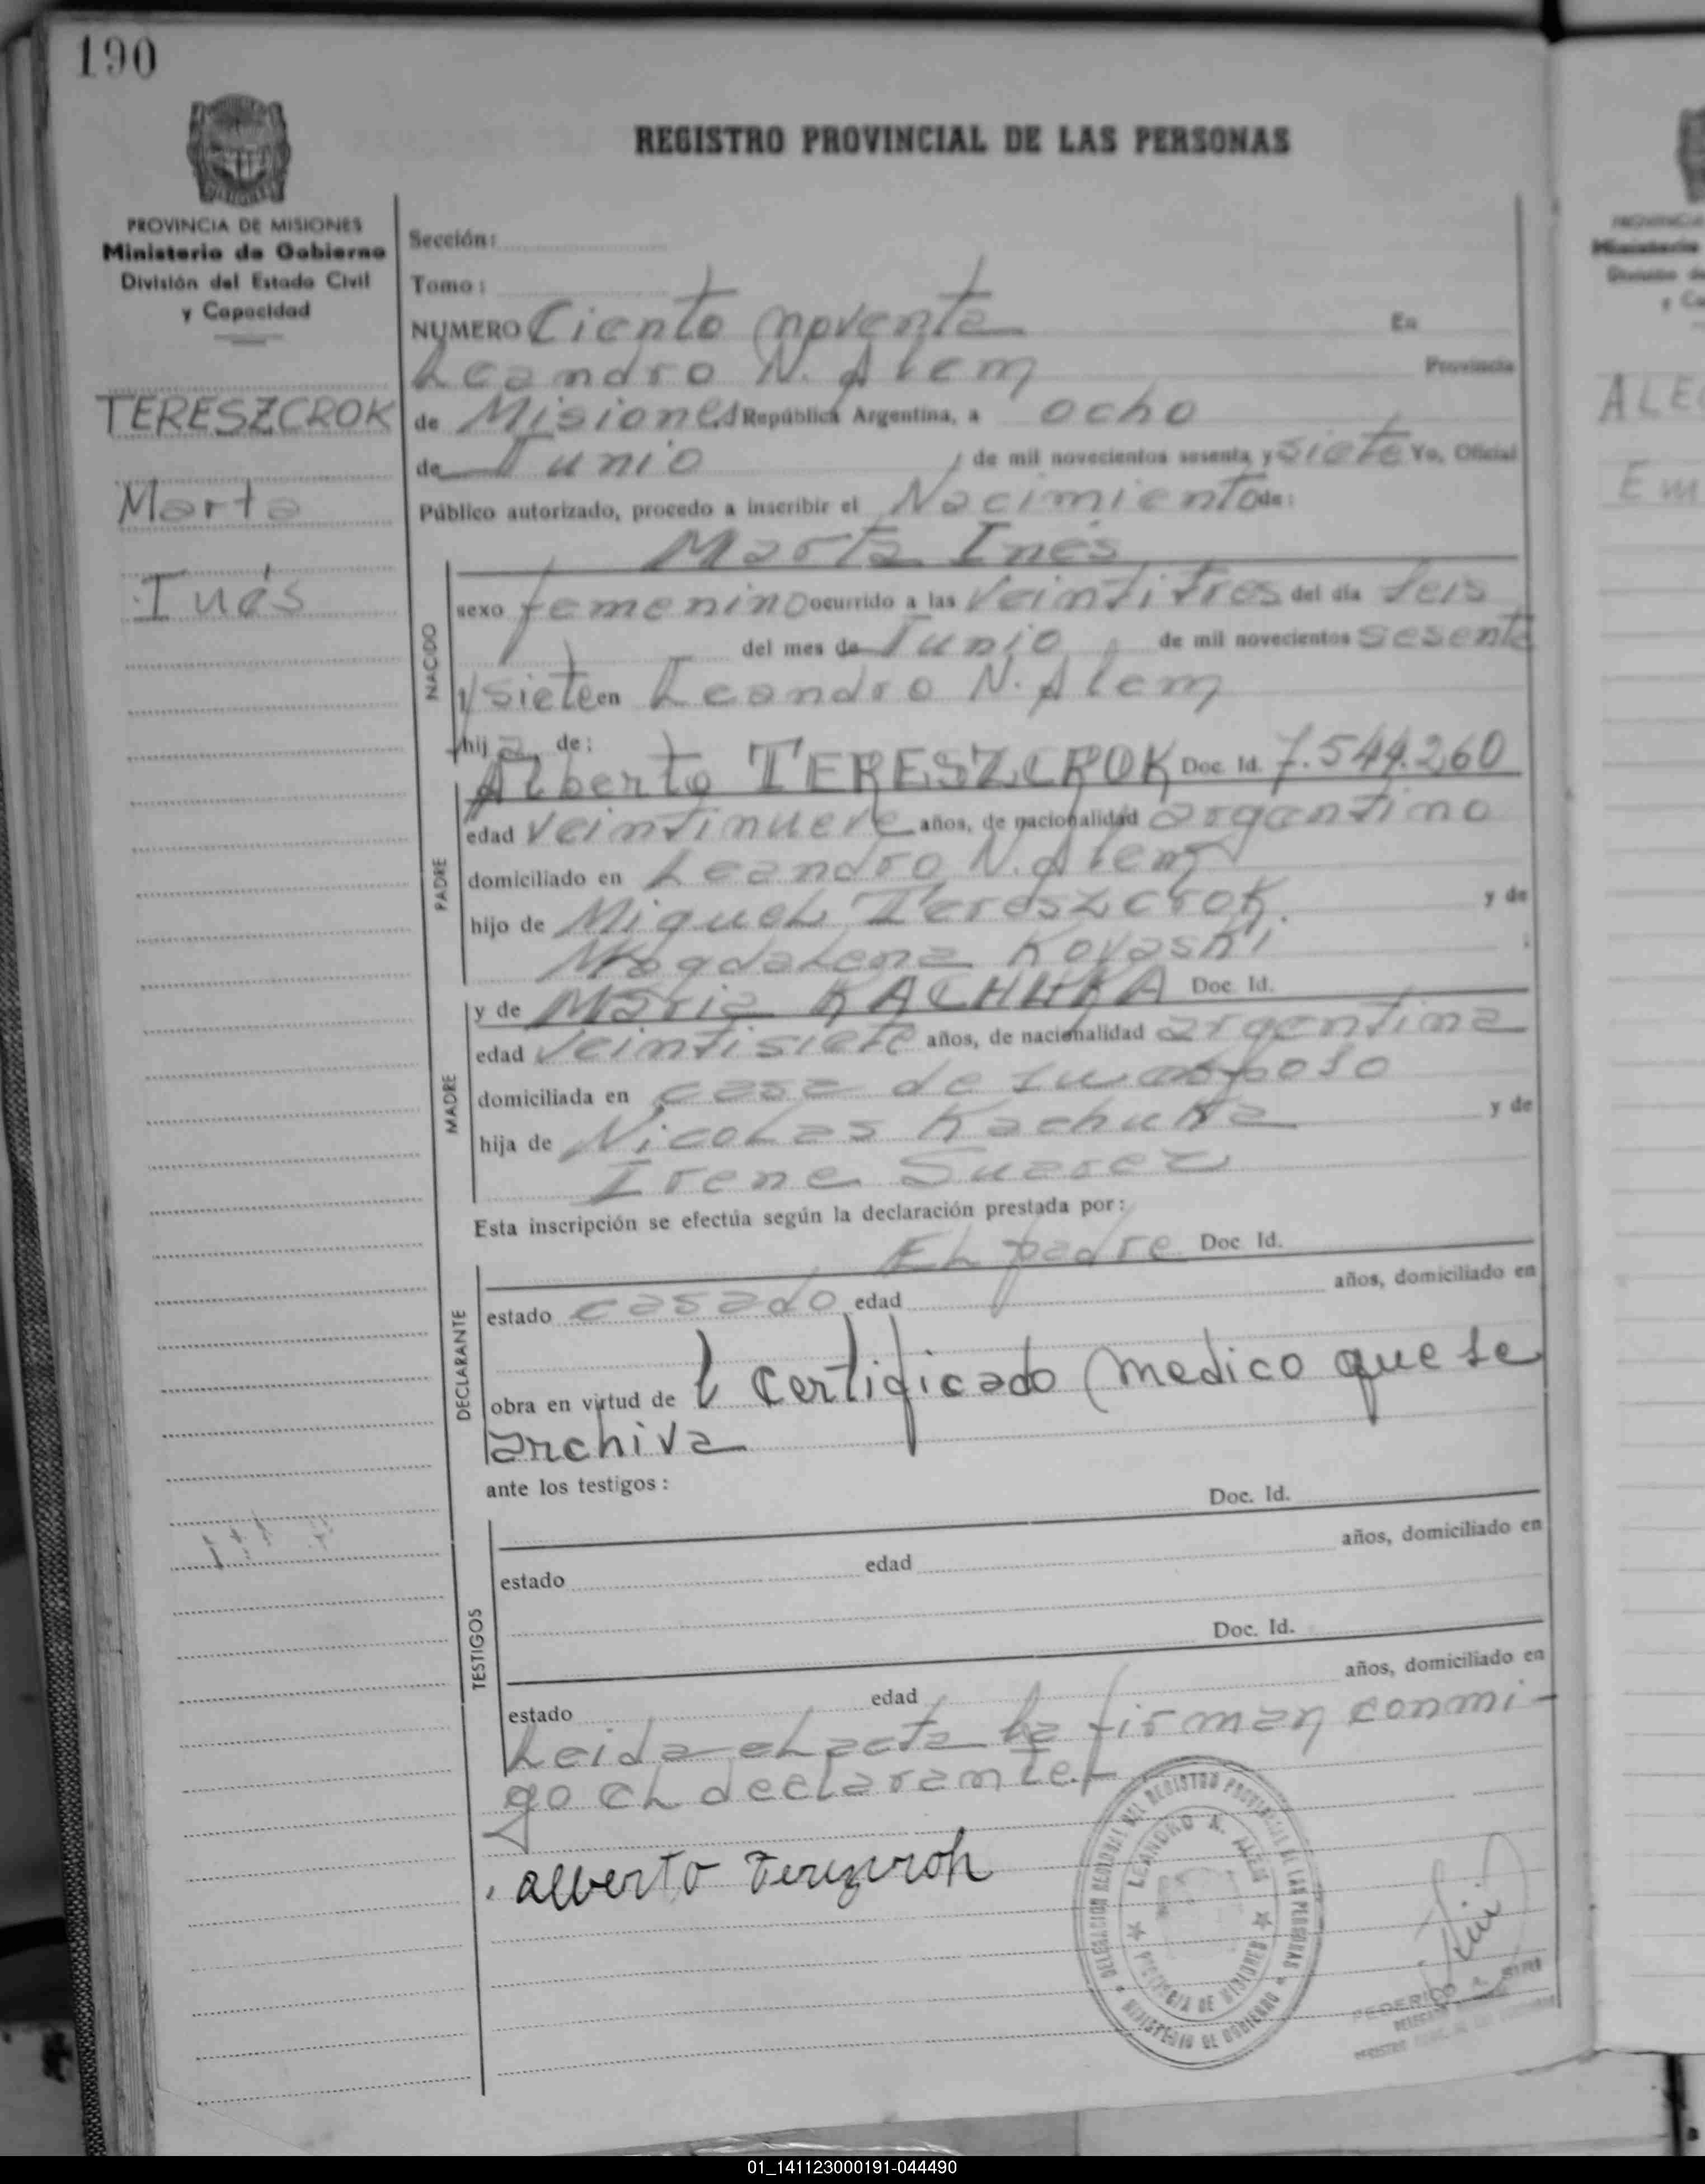 190
REGISTRO PROVINCIAL DE LAS PERSONAS
PROVINCIA DE MISIONES
Ministerio de Gobierno
División del Estado Civil
y Capacidad
TERESZCROK
Marta
Inés
Sección:
Tomo:
NUMERO Ciento noventa En
Leandro N. Alem Provincia
de Misiones República Argentina, a ocho
de Junio de mil novecientos sesenta y siete Yo, Oficial
Público autorizado, procedo a inscribir el Nacimiento de:
Marta Inés
NACIDO
sexo femenino ocurrido a las veintitres del día seis
del mes de Junio, de mil novecientos sesenta
y siete en Leandro N. Alem
hija de:
Alberto TERESZCROK Doc. Id. 7.544.260
PADRE
edad veintinueve años, de nacionalidad argentino
domiciliado en Leandro N. Alem
hijo de Miguel Tereszcrok. y de
Magdalena Kovaski
MADRE
y de Maria KACHUKA Doc. Id.
edad veintisiete años, de nacionalidad argentina
domiciliada en casa de su esposo
hija de Nicolas Kachuka y de
Irene Suarez
Esta inscripción se efectúa según la declaración prestada por:
El padre Doc. Id.
DECLARANTE
estado casado edad años, domiciliado en
obra en virtud de l certificado medico que se
archiva
ante los testigos:
Doc. Id.
TESTIGOS
estado edad años, domiciliado en
Doc. Id.
estado edad años, domiciliado en
Leida el acta la firman conmi-
go el declarante.
alberto
DELEGACION REGIONAL DEL REGISTRO PROVINCIAL DE LAS PERSONAS
LEANDRO N. ALEM
PROVINCIA DE MISIONES
MINISTERIO DE GOBIERNO
FEDERICO
ALE
Em
01_141123000191-044490